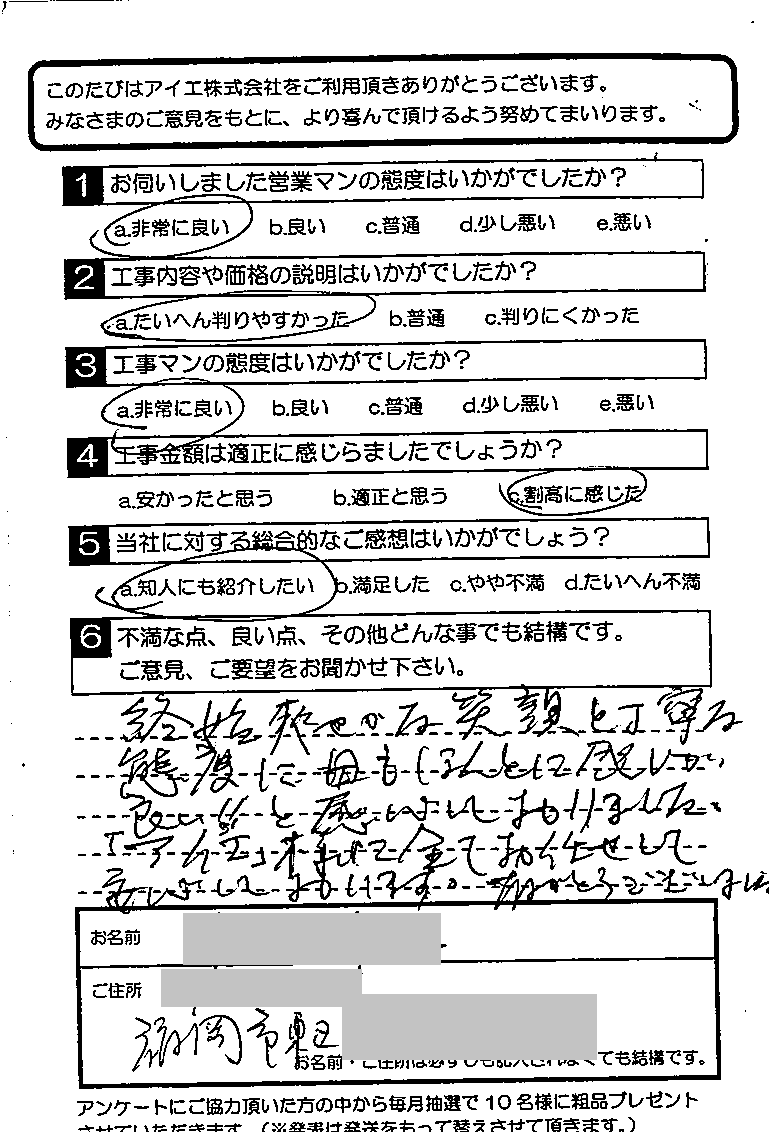 このたびはアイエ株式会社をご利用頂きありがとうございます。
みなさまのご意見をもとに、より喜んで頂けるよう努めてまいります。
1 お伺いしました営業マンの態度はいかがでしたか？
a.非常に良い b.良い c.普通 d.少し悪い e.悪い
2 工事内容や価格の説明はいかがでしたか？
a.たいへん判りやすかった b.普通 c.判りにくかった
3 工事マンの態度はいかがでしたか？
a.非常に良い b.良い c.普通 d.少し悪い e.悪い
4 工事金額は適正に感じらましたでしょうか？
a.安かったと思う b.適正と思う c.割高に感じた
5 当社に対する総合的なご感想はいかがでしょう？
a.知人にも紹介したい b.満足した c.やや不満 d.たいへん不満
6 不満な点、良い点、その他どんな事でも結構です。
ご意見、ご要望をお聞かせ下さい。
終始和やかな笑顔と丁寧な
態度に母もほんとに感じが
良い
と感
しておりました。
「アイエ」
全てお任せして
おります。ありがとうございました
お名前
ご住所
福岡市東区
お名前・ご住所は必ずしも記入されなくても結構です。
アンケートにご協力頂いた方の中から毎月抽選で10名様に粗品プレゼント
させていただきます。（※発表は発送をもって替えさせて頂きます。）